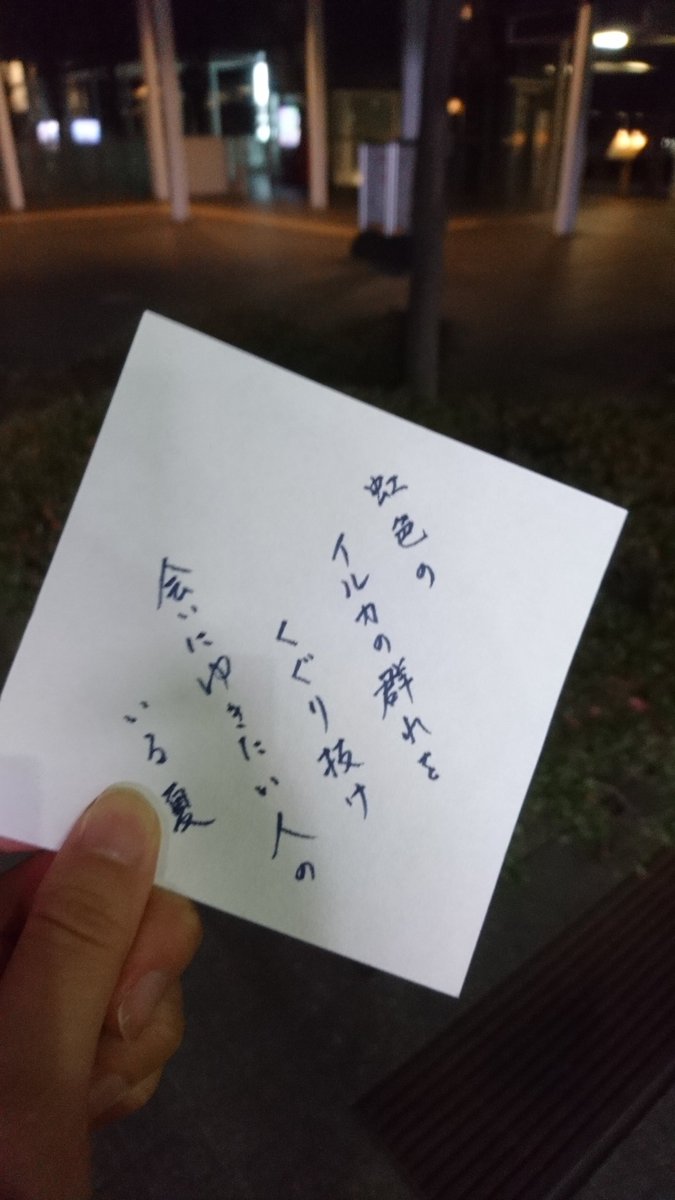 虹色の
イルカの群れを
くぐり抜け
会いにゆきたい人の
いる夏